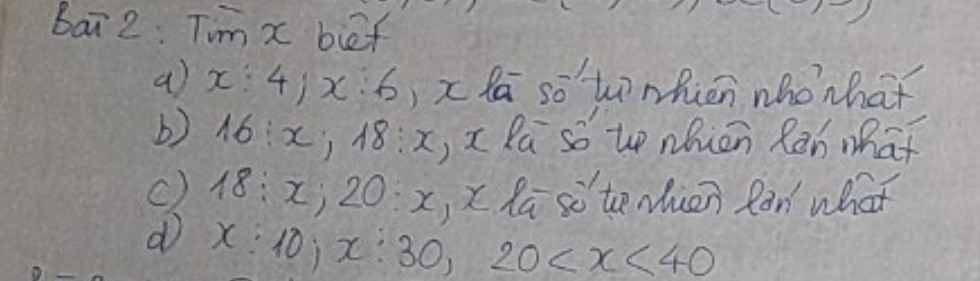 Bài 2: Tìm x biết
a) x ⋮ 4; x ⋮ 6, x là số tự nhiên nhỏ nhất
b) 16 ⋮ x; 18 ⋮ x, x là số tự nhiên lớn nhất
c) 18 ⋮ x; 20 ⋮ x, x là số tự nhiên lớn nhất
d) x ⋮ 10; x ⋮ 30, 20 < x < 40